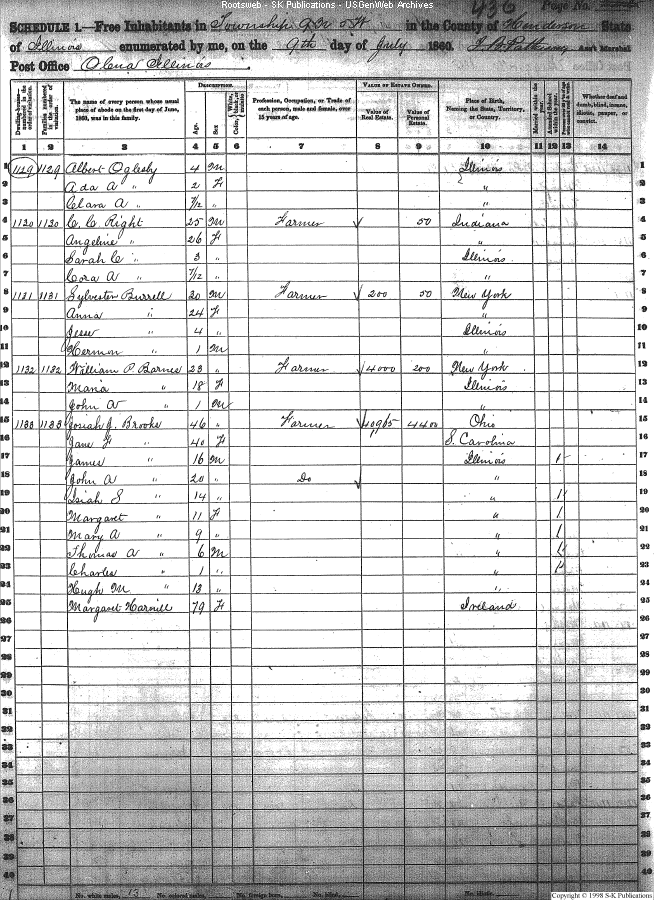 Rootsweb - SK Publications - USGenWeb Archives
436 Page No.
SCHEDULE 1.—Free Inhabitants in Township in the County of Henderson State
of Illinois enumerated by me, on the 9th day of July 1860. Ass't Marshal
Post Office Olena Illinois
Dwelling-houses—numbered in the order of visitation. Families numbered in the order of visitation. The name of every person whose usual place of abode on the first day of June, 1860, was in this family. DESCRIPTION. Age. Sex Profession, Occupation, or Trade of each person, male and female, over 15 years of age. VALUE OF ESTATE OWNED. Value of Real Estate. Value of Personal Estate. Place of Birth, Naming the State, Territory, or Country. Married within the year. Attended School within the year. Whether deaf and dumb, blind, insane, idiotic, pauper, or convict.
1 2 3 4 5 6 7 8 9 10 11 12 13 14
1 1129 1129 Albert Oglesby 4 M Illinois 1
2 Ada A " 2 F " 2
3 Clara A " 7/12 " " 3
4 1130 1130 C. C. Right 25 M Farmer 50 Indiana 4
5 Angeline " 26 F " 5
6 Sarah C " 3 " Illinois 6
7 Cora A " 7/12 " " 7
8 1131 1131 Sylvester Burrell 30 M Farmer 200 50 New York 8
9 Anna " 24 F " 9
10 Jesse " 4 " Illinois 10
11 Hermon " 1 M " 11
12 1132 1132 William P. Barnes 23 " Farmer 4000 200 New York 12
13 Maria " 18 F Illinois 13
14 John A " 1 M " 14
15 1133 1133 Josiah J. Brooks 46 " Farmer 40965 4400 Ohio 15
16 Jane F " 40 F S. Carolina 16
17 James " 16 M Illinois 1 17
18 John A " 20 " Do " 18
19 Isiah S " 14 " " 1 19
20 Margaret " 11 F " 1 20
21 Mary A " 9 " " 1 21
22 Thomas A " 6 M " 1 22
23 Charles " 1 " " 1 23
24 Hugh M. " 13 " " 24
25 Margaret 79 F Ireland 25
26 26
27 27
28 28
29 29
30 30
31 31
32 32
33 33
34 34
35 35
36 36
37 37
38 38
39 39
40 40
No. white males, 13 No. colored males, No. foreign born, No. blind,
Copyright © 1998 S-K Publications